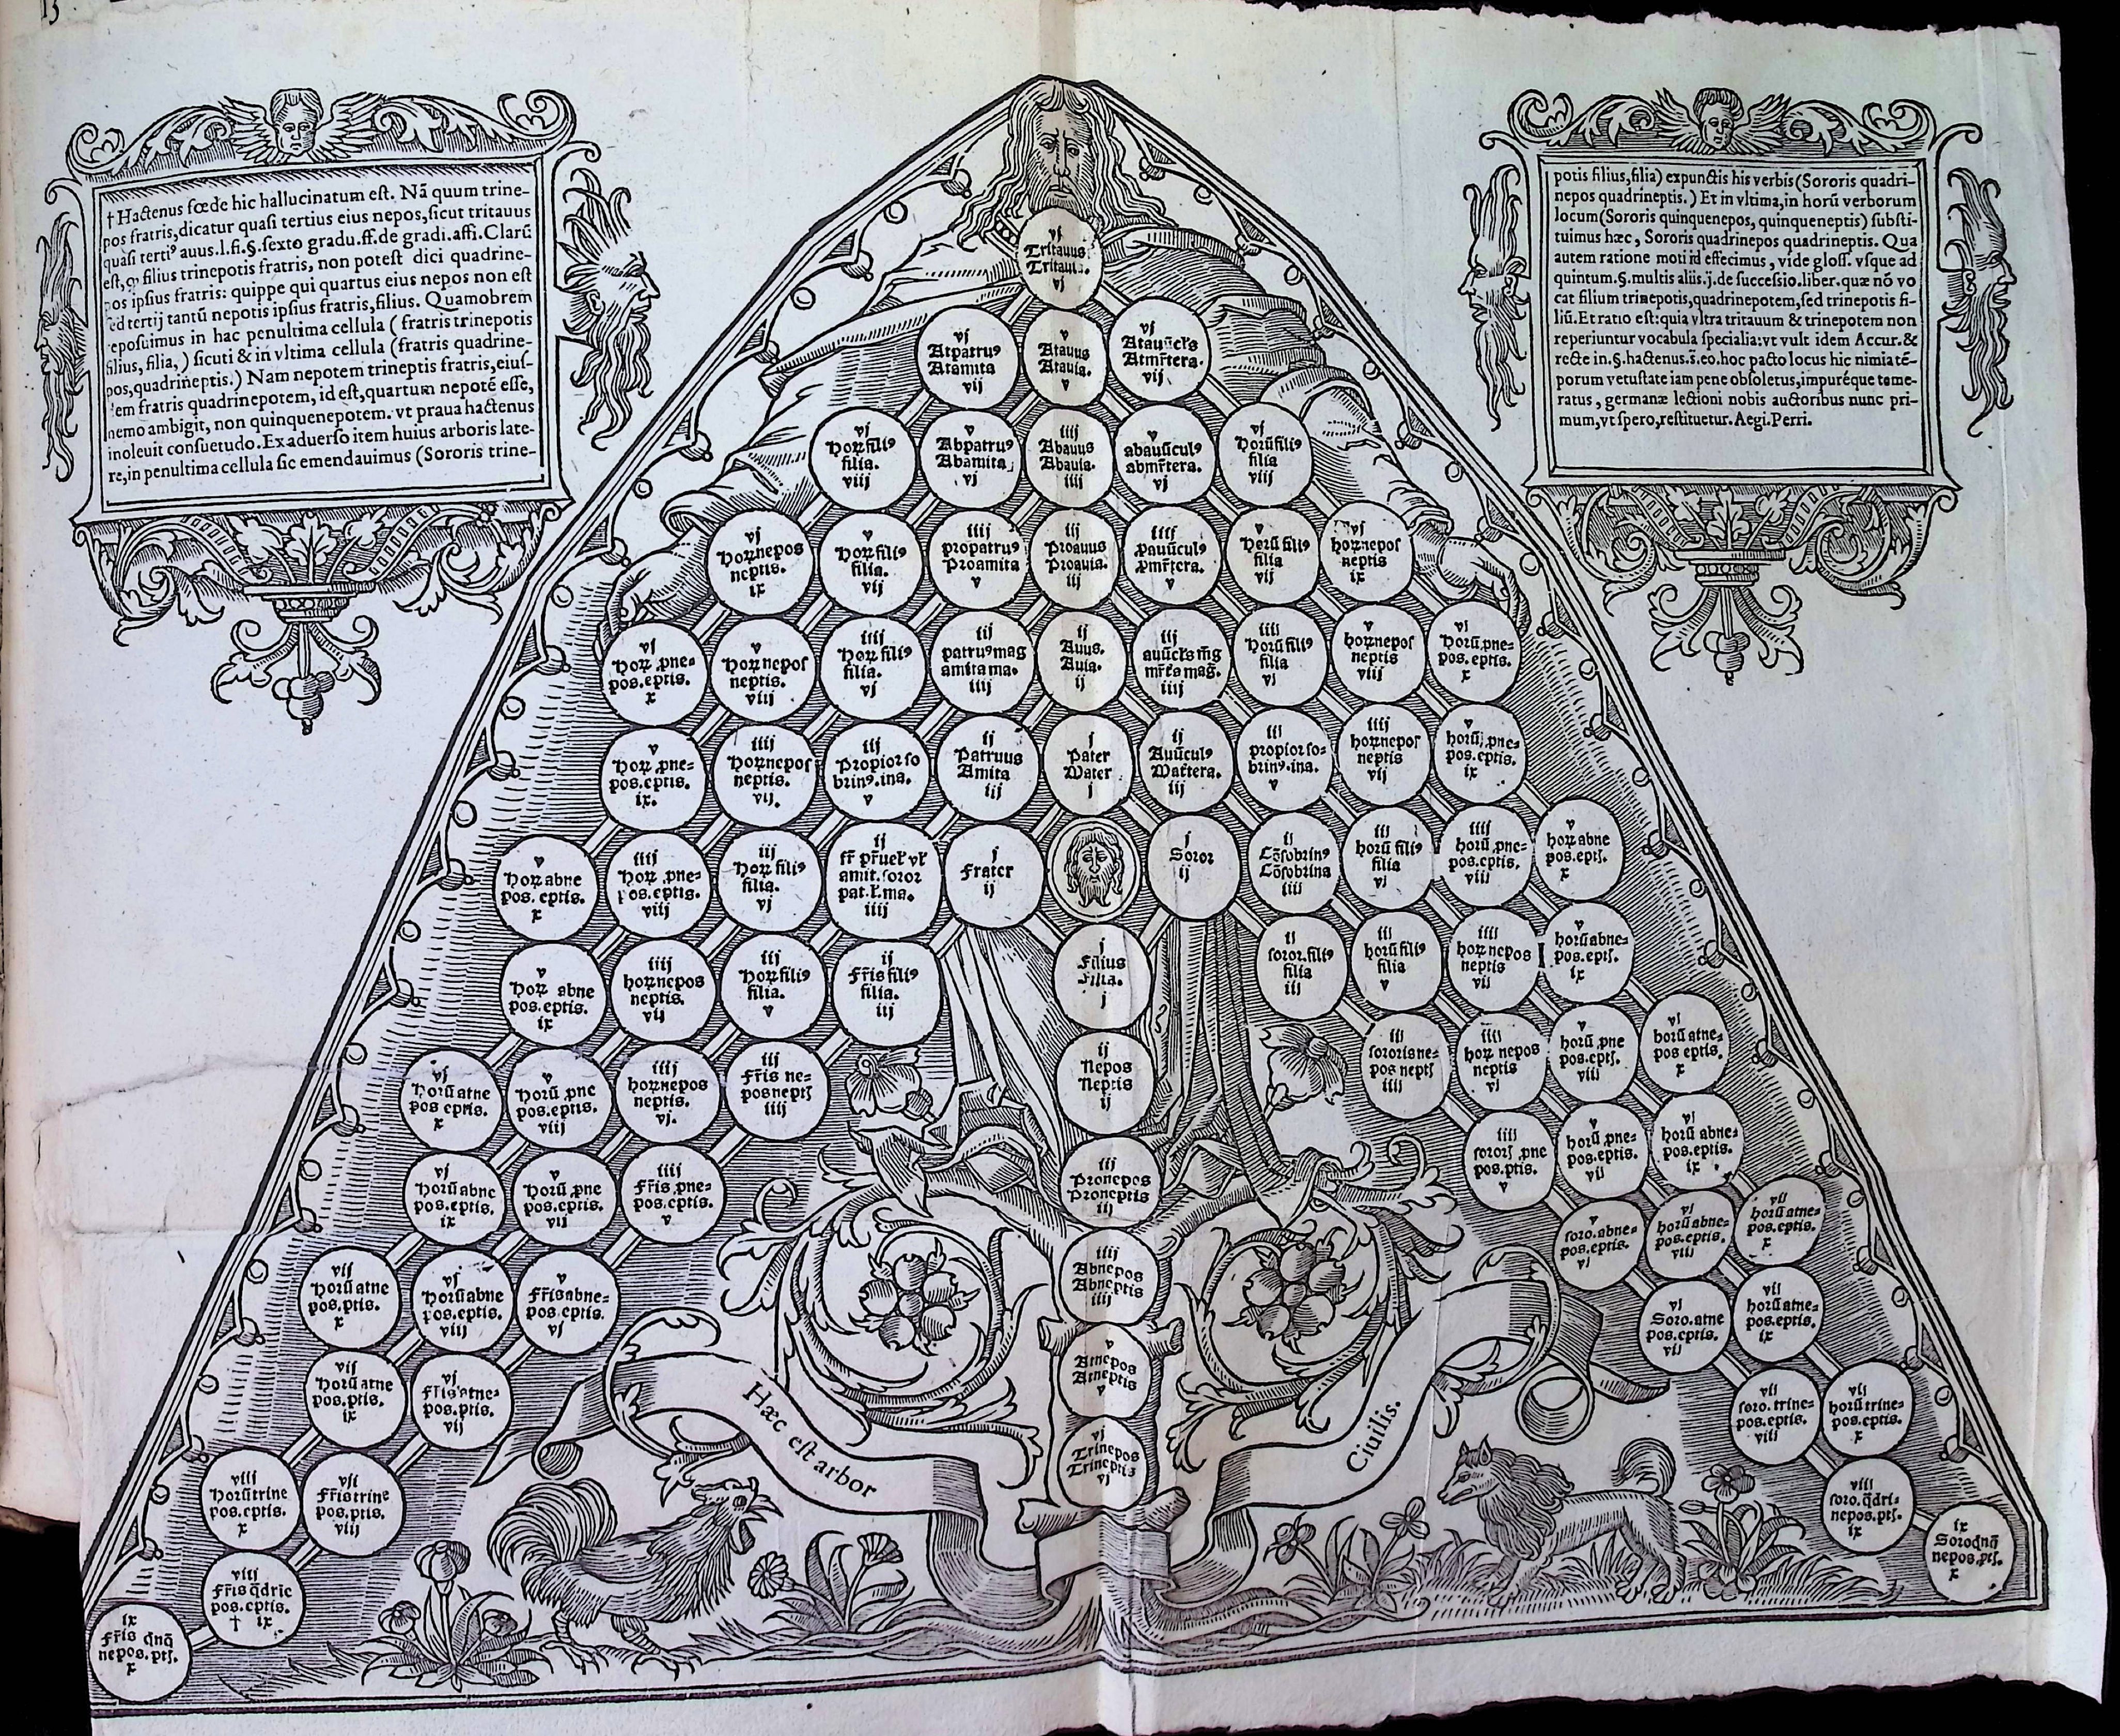 15
†Hactenus fœde hic hallucinatum est. Nā quum trine-
pos fratris, dicatur quasi tertius eius nepos, sicut tritauus
quasi terti⁹ auus. l. fi. §. sexto gradu. ff. de gradi. affi. Clarū
est, ꝙ filius trinepotis fratris, non potest dici quadrine-
pos ipsius fratris: quippe qui quartus eius nepos non est
sed tertij tantū nepotis ipsius fratris, filius. Quamobrem
reposuimus in hac penultima cellula (fratris trinepotis
filius, filia,) sicuti & in vltima cellula (fratris quadrine-
pos, quadrineptis.) Nam nepotem trineptis fratris, eius-
dem fratris quadrinepotem, id est, quartum nepotē esse,
nemo ambigit, non quinquenepotem. vt praua hactenus
inoleuit consuetudo. Ex aduerso item huius arboris late-
re, in penultima cellula sic emendauimus (Sororis trine-
potis filius, filia) expunctis his verbis (Sororis quadri-
nepos quadrineptis.) Et in vltima, in horū verborum
locum (Sororis quinquenepos, quinqueneptis) substi-
tuimus hæc, Sororis quadrinepos quadrineptis. Qua
autem ratione moti id effecimus, vide gloss. vsque ad
quintum. §. multis aliis. j. de successio. liber. quæ nō vo
cat filium trinepotis, quadrinepotem, sed trinepotis fi-
liū. Et ratio est: quia vltra tritauum & trinepotem non
reperiuntur vocabula specialia: vt vult idem Accur. &
recte in. §. hactenus. ī. eo. hoc pacto locus hic nimia tē-
porum vetustate iam pene obsoletus, impuréque teme-
ratus, germanæ lectioni nobis auctoribus nunc pri-
mum, vt spero, restituetur. Aegi. Perri.
vj
Tritauus
Tritauia.
vj
vj
Atpatru⁹
Atamita
vij
v
Atauus
Atauia.
v
vj
Atauūcl's
Atmr̄tera.
vij
vj
Hoꝝ fili⁹
filia.
viij
v
Abpatru⁹
Abamita
vj
iiij
Abauus
Abauia.
iiij
v
abauūcul⁹
abmr̄tera.
vj
vj
Horū fili⁹
filia
viij
vj
Hoꝝ nepos
neptis.
ix
v
Hoꝝ fili⁹
filia.
vij
iiij
propatru⁹
Proamita
v
iij
Proauus
Proauia.
iij
iiij
ꝓauūcul⁹
ꝓmr̄tera.
v
v
Horū fili⁹
filia
vij
vj
hoꝝ nepos
neptis
ix
vj
Hoꝝ ꝓne-
pos. eptis.
x
v
Hoꝝ nepos
neptis.
viij
iiij
Hoꝝ fili⁹
filia.
vj
iij
patru⁹ mag
amita ma.
iiij
ij
Auus.
Auia.
ij
iij
auūcl's m̄g
mr̄t's mag.
iiij
iiij
Horū fili⁹
filia
vj
v
hoꝝ nepos
neptis
viij
vj
Horū ꝓne-
pos. eptis.
x
v
Hoꝝ ꝓne-
pos. eptis.
ix.
iiij
Hoꝝ nepos
neptis.
vij.
iij
Propior so
brin⁹. ina.
v
ij
Patruus
Amita
iij
j
Pater
Mater
j
ij
Auūcul⁹
Mat̄tera.
iij
iij
propior so-
brin⁹. ina.
v
iiij
hoꝝ nepos
neptis
vij
v
horū ꝓne-
pos. eptis.
ix
v
Hoꝝ abne
pos. eptis.
x
iiij
Hoꝝ ꝓne-
pos. eptis.
viij
iij
Hoꝝ fili⁹
filia.
vj
ij
fr̄ pr̄uel' vl'
amit. soror
pat. l'. ma.
iiij
j
Frater
ij
j
Soror
ij
ij
Cōsobrin⁹
Cōsobrina
iiij
iij
horū fili⁹
filia
vj
iiij
horū ꝓne-
pos. eptis.
viij
v
hoꝝ abne
pos. eptꝭ.
x
v
Hoꝝ abne
pos. eptis.
ix
iiij
hoꝝ nepos
neptis.
vij
iij
Hoꝝ fili⁹
filia.
v
ij
Fr̄is fili⁹
filia.
iij
j
Filius
Filia.
j
ij
soror. fili⁹
filia
iij
iij
horū fili⁹
filia
v
iiij
hoꝝ nepos
neptis
vij
v
horū abne-
pos. eptꝭ.
ix
vj
Horū atne
pos eptis.
x
v
Horū ꝓne
pos. eptis.
viij
iiij
hoꝝ nepos
neptis.
vj.
iij
Fr̄is ne-
pos neptꝭ
iiij
ij
Nepos
Neptis
ij
iij
sororis ne-
pos neptꝭ
iiij
iiij
hoꝝ nepos
neptis
vj
v
horū ꝓne
pos. eptꝭ.
viij
vj
horū atne-
pos eptis.
x
vj
Horū abne
pos. eptis.
ix
v
Horū ꝓne
pos. eptis.
vij
iiij
Fr̄is ꝓne-
pos. eptis.
v
iij
Pronepos
Proneptis
iij
iiij
sororꝭ ꝓne
pos. ptis.
v
v
horū ꝓne-
pos. eptis.
vij
vj
horū abne-
pos. eptis.
ix
vij
Horū atne
pos. ptis.
x
vj
Horū abne
pos. eptis.
viij
v
Fr̄is abne-
pos. eptis.
vj
iiij
Abnepos
Abneptis
iiij
v
soro. abne-
pos. eptis.
vj
vj
horū abne-
pos. eptis.
viij
vij
horū atne-
pos. eptis.
x
vij
Horū atne
pos. ptis.
ix
vj
Fr̄is atne-
pos. ptis.
vij
v
Atnepos
Atneptis
v
vj
Soro. atne
pos. eptis.
vij
vij
horū atne-
pos. eptis.
ix
viij
Horū trine
pos. eptis.
x
vij
Fr̄is trine
pos. ptis.
viij
vj
Trinepos
Trineptis
vj
vij
soro. trine-
pos. eptis.
viij
vij
horū trine-
pos. eptis.
x
viij
Fr̄is q̄dric
pos. eptis.
† ix
viij
soro. q̄dri-
nepos. ptꝭ.
ix
ix
Fr̄is qnq̄
nepos. ptꝭ.
x
ix
Soro qnq̄
nepos. ptꝭ.
x
Hæc est arbor
Ciuilis.